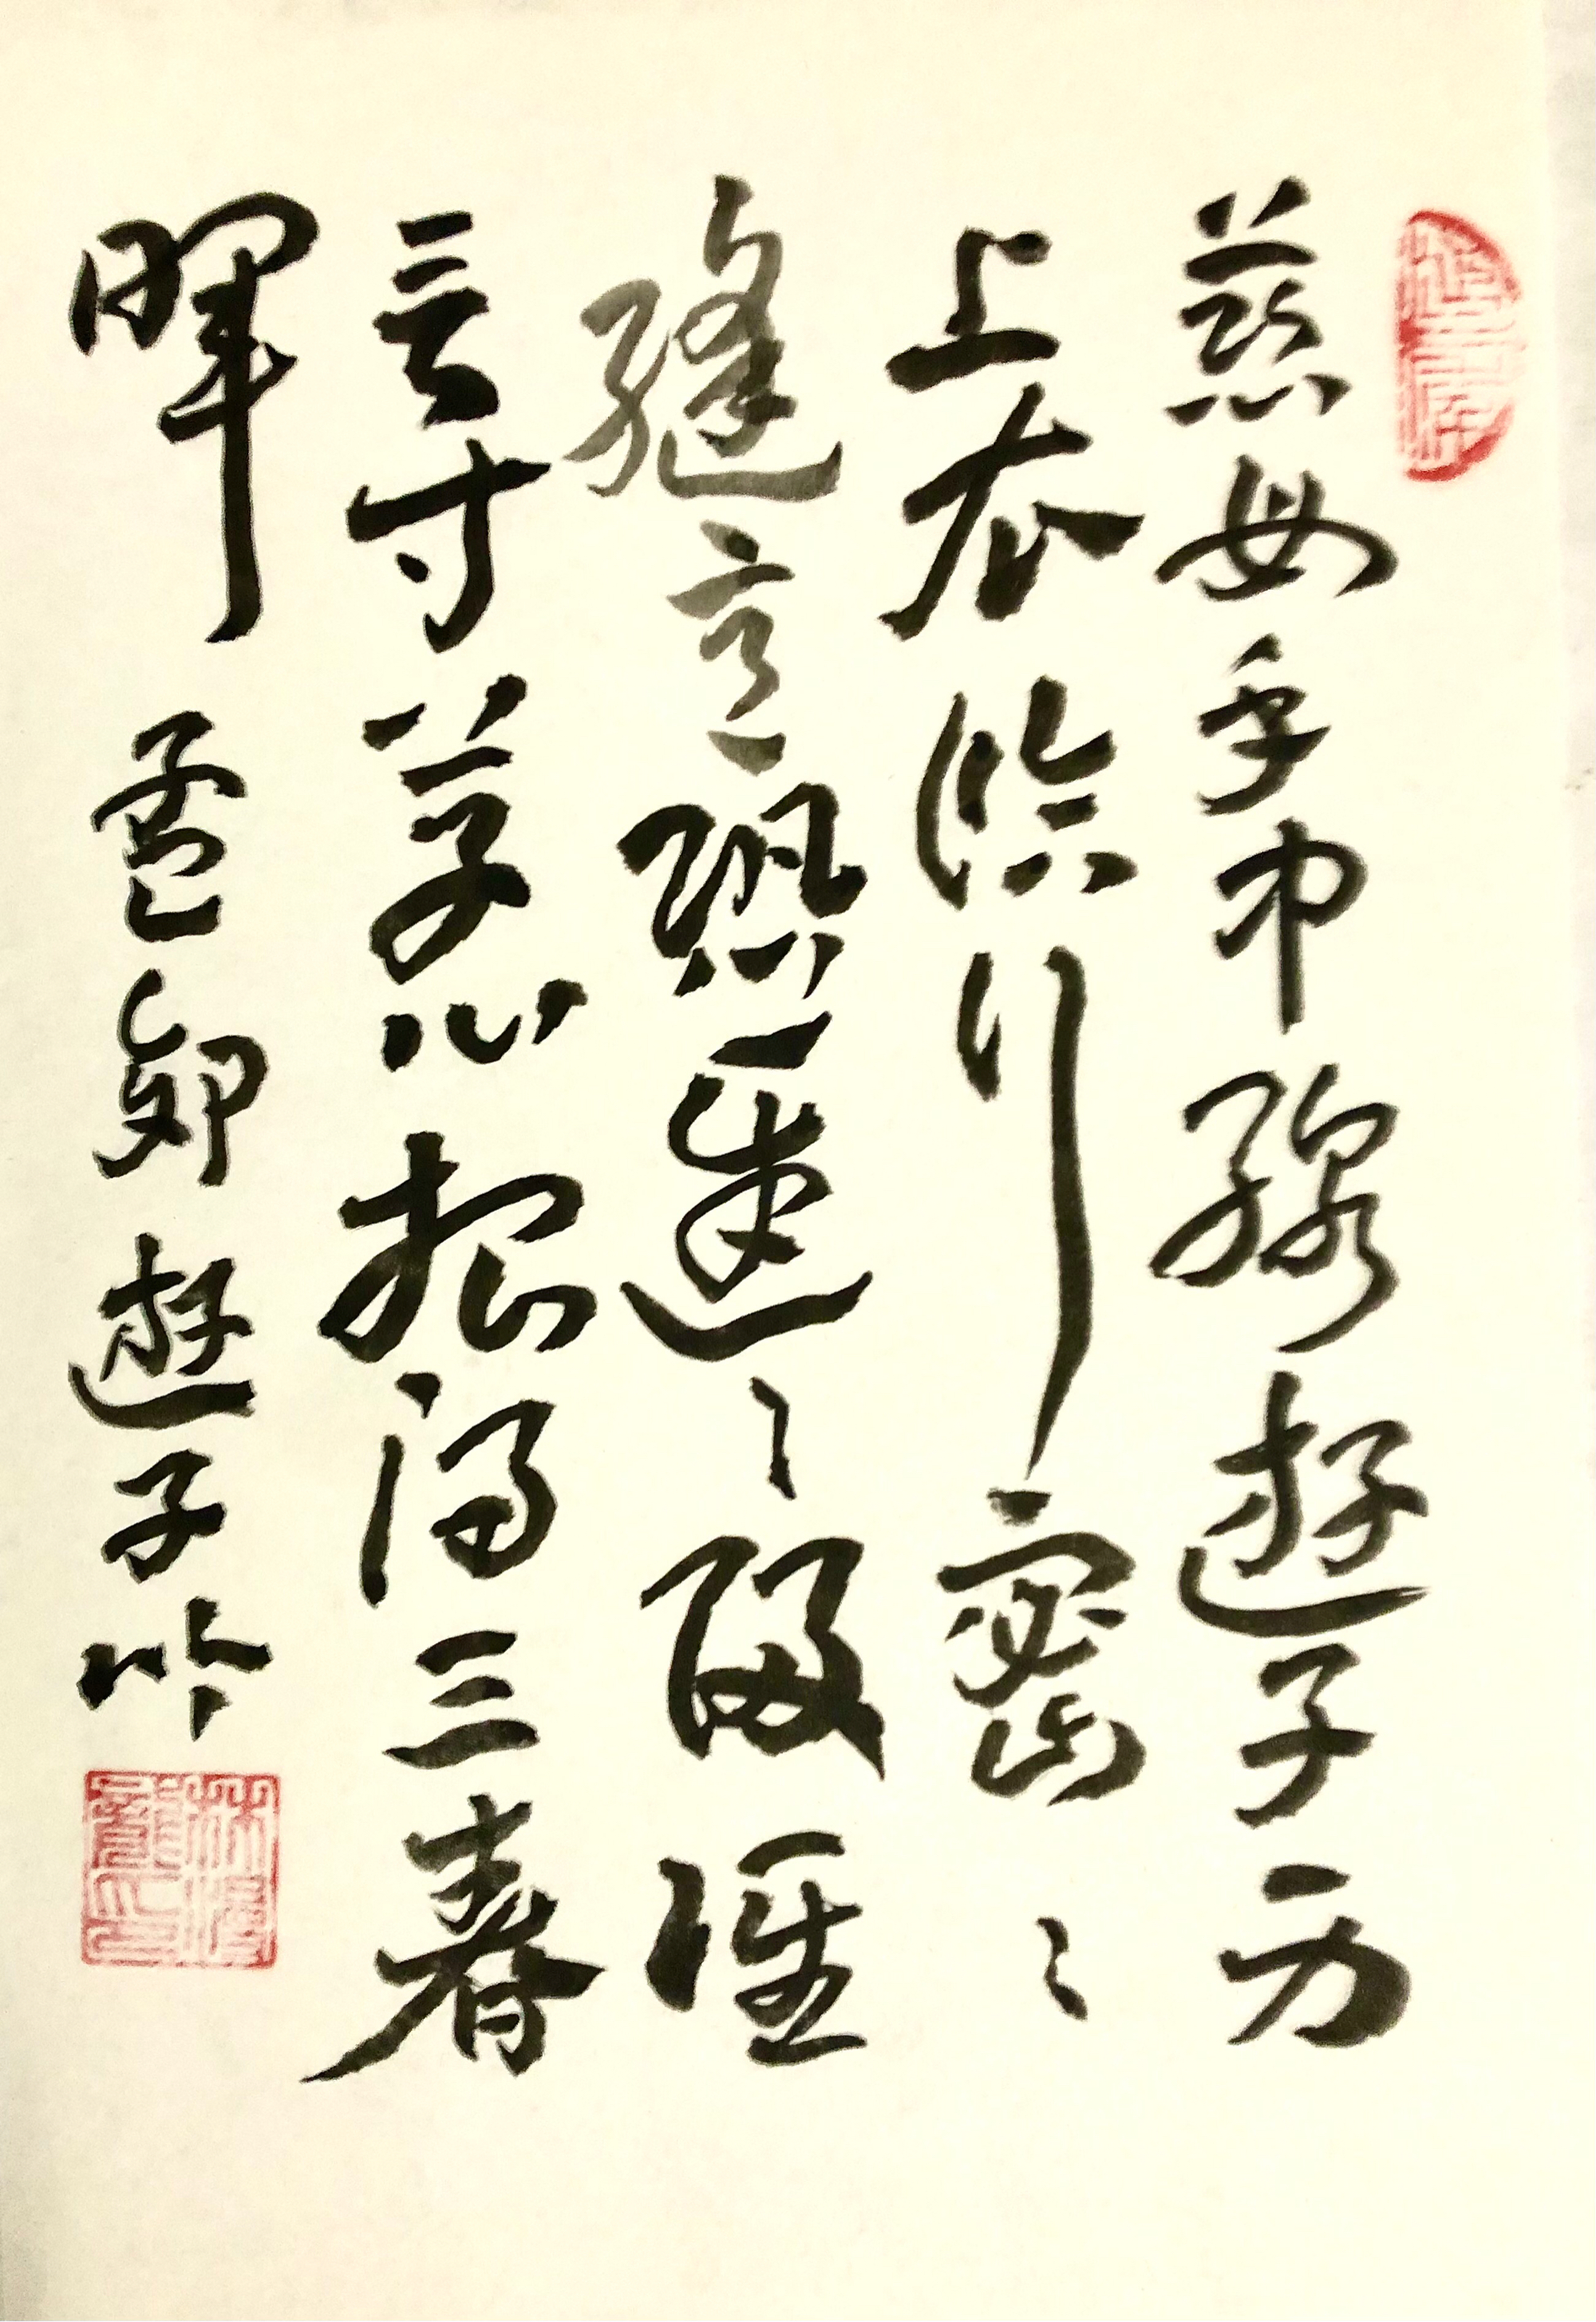 慈母手中線遊子身
上衣臨行密々
縫意恐遲々歸誰
言寸草心報得三春
暉 孟郊遊子吟